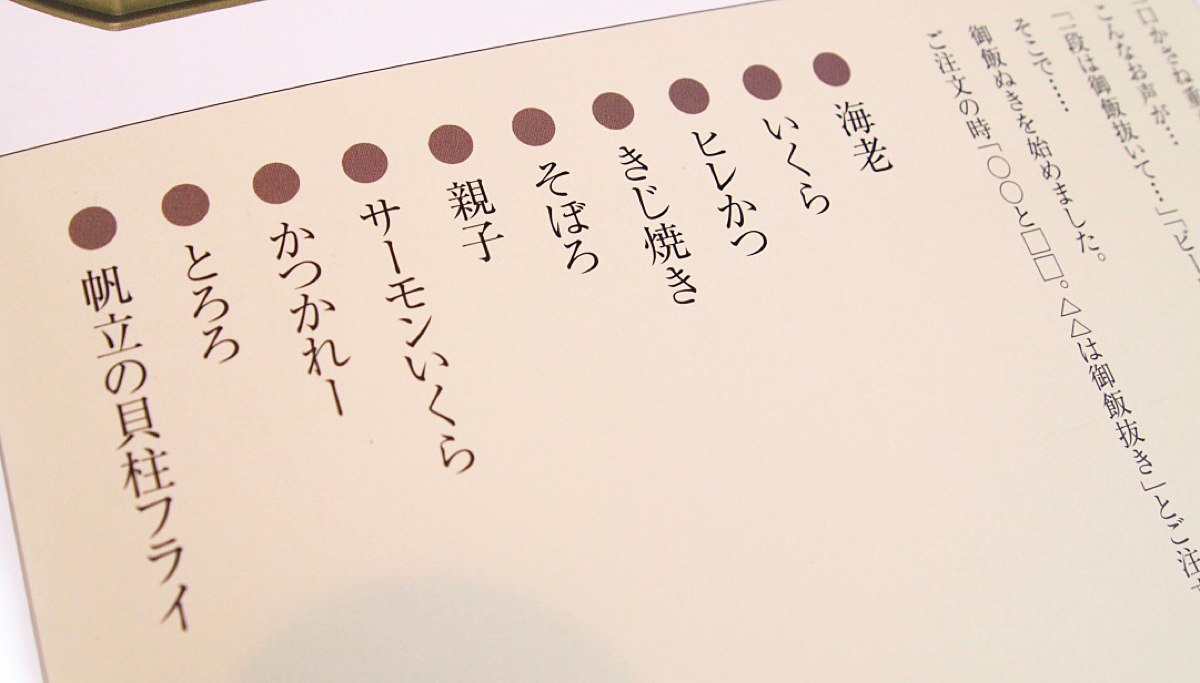 こんなお声が…
「一段は御飯抜いて…」「ビー
そこで……
御飯ぬきを始めました。
ご注文の時「○○と□□。△△は御飯抜き」とご注
●海老
●いくら
●ヒレかつ
●きじ焼き
●そぼろ
●親子
●サーモンいくら
●かつかれー
●とろろ
●帆立の貝柱フライ